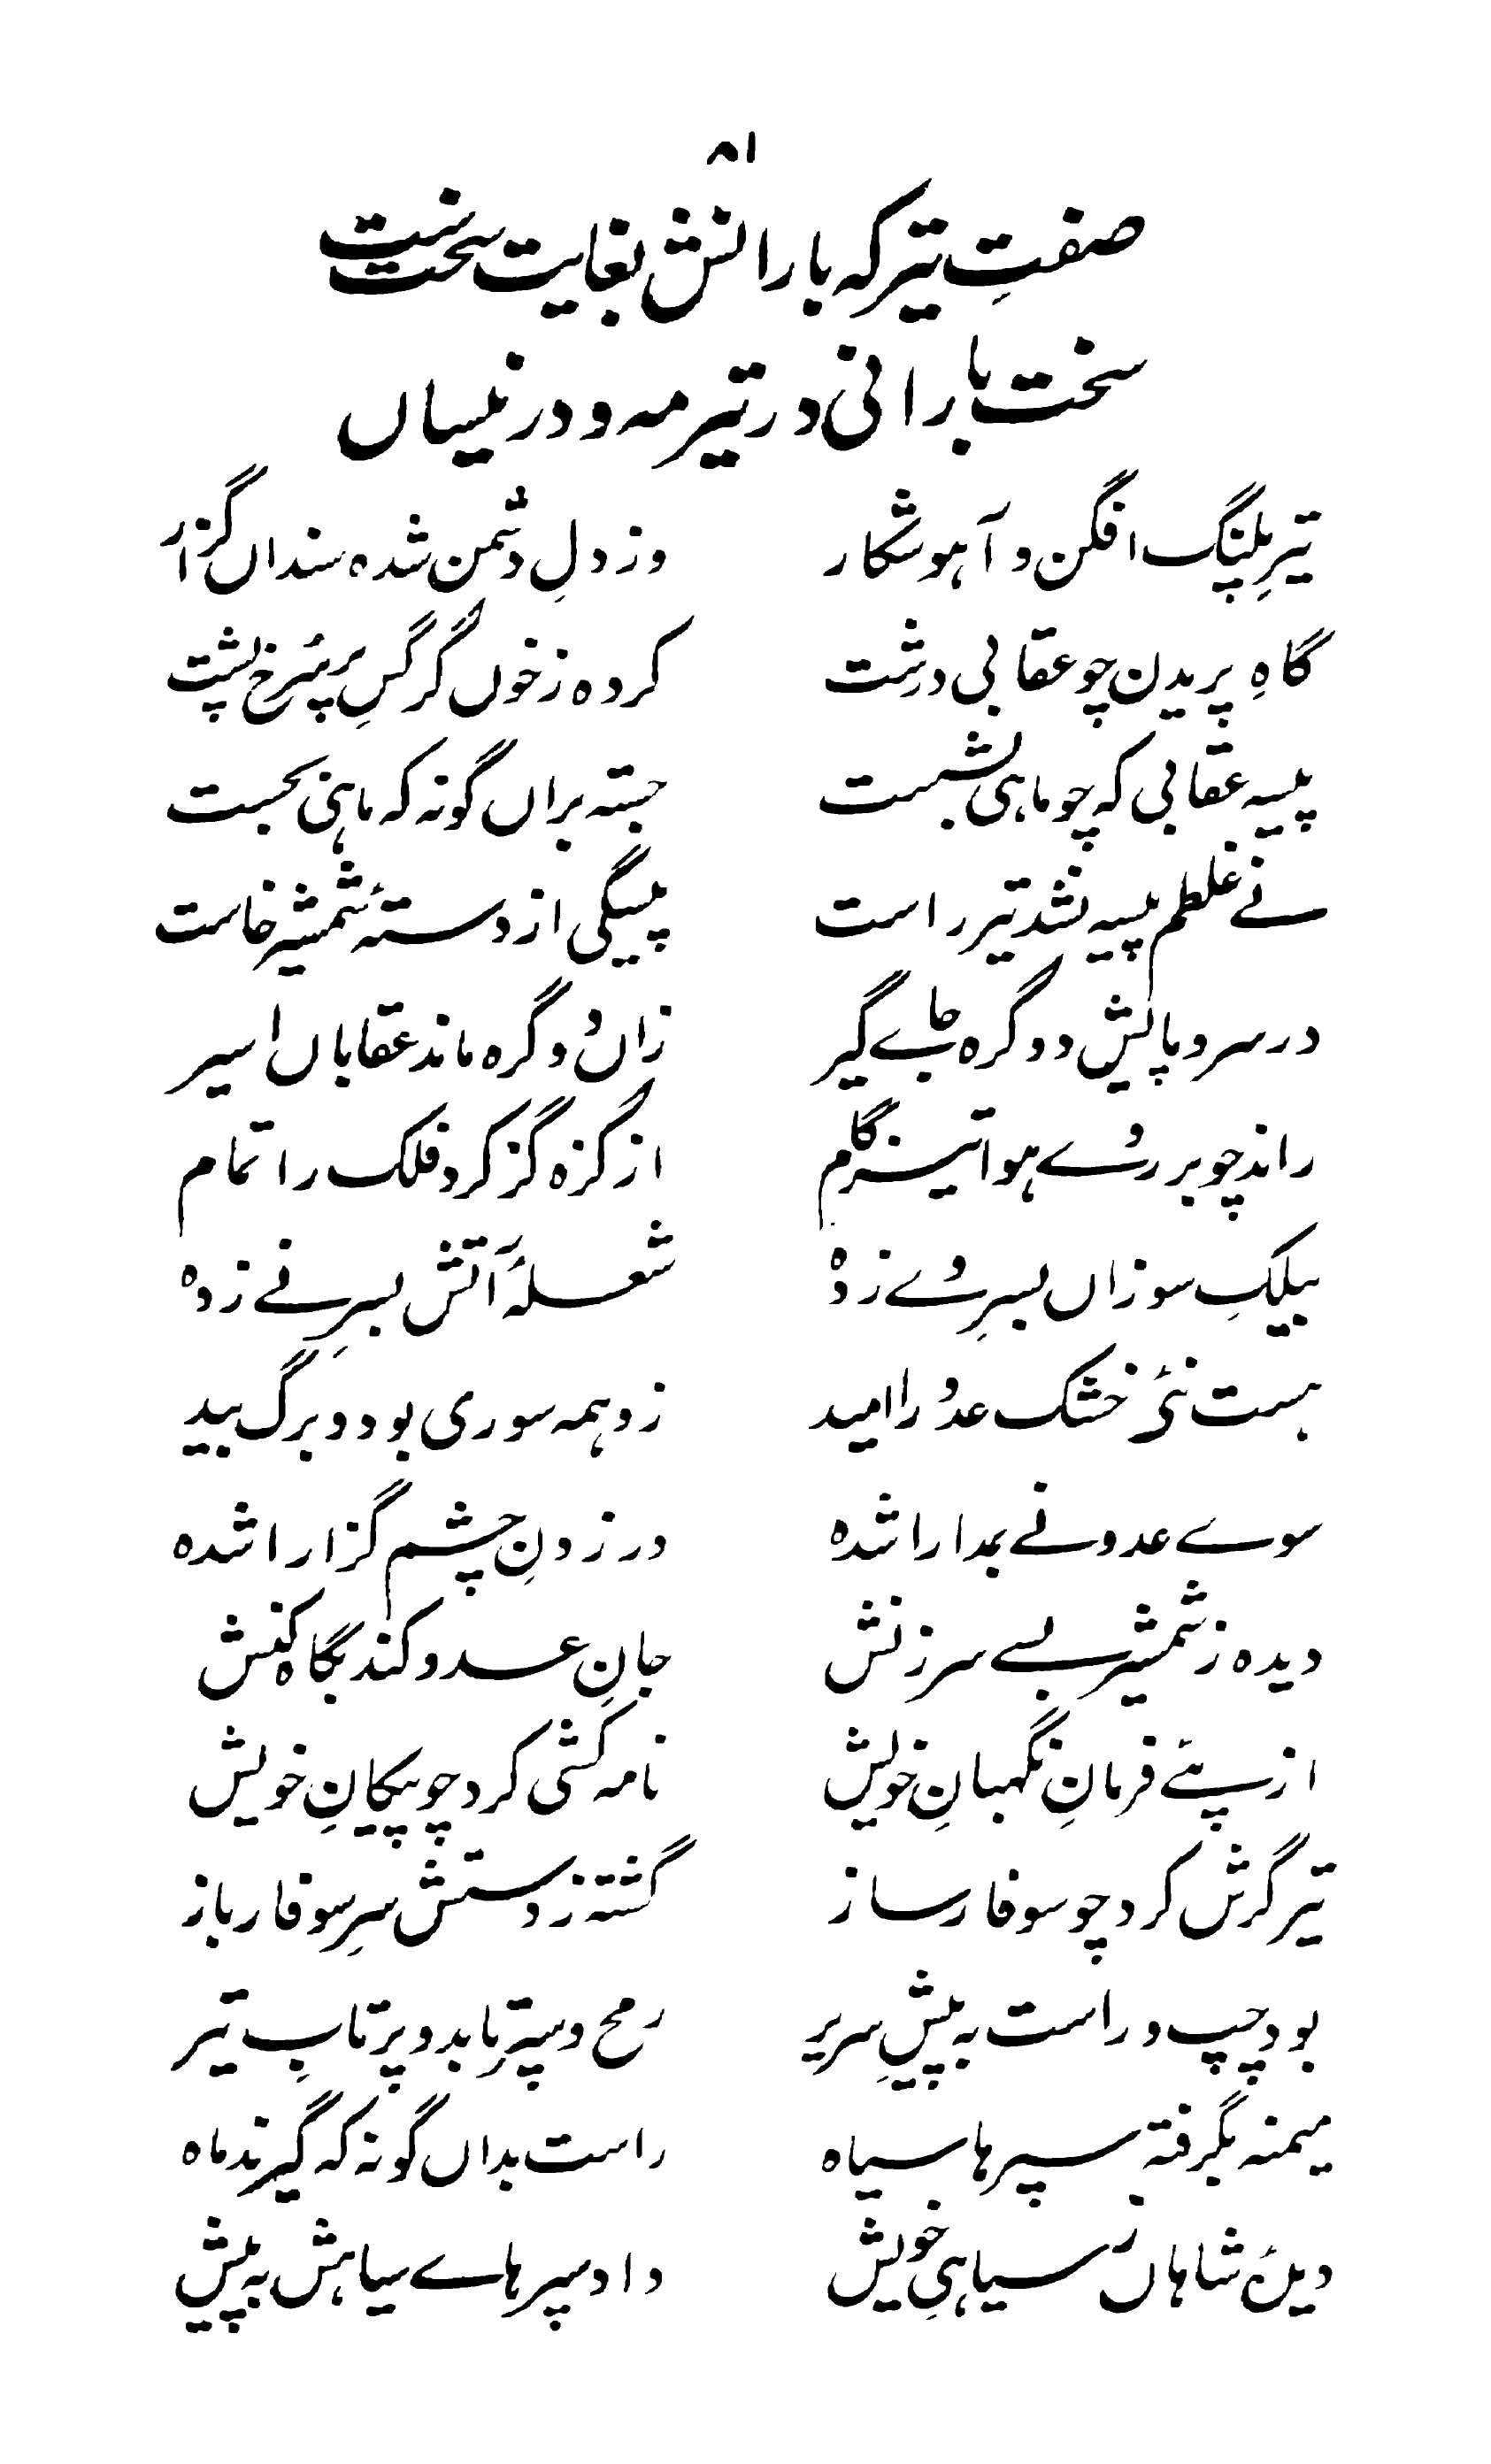 ۸۱
صفتِ تیر که بارانش بغایت سخت ست
سخت بارانی در تیر مه و در نیساں
تیرِ پلنگ افگن و آہو شکار وز دلِ دشمن شده سنداں گزار
گاهِ پریدن چو عقابی درشت کرده ز خوں گرگسِ پر سُرخ پشت
پیسه عقابی که چو ماہی بشست جسته براں گونه که ماہی بجست
نے غلطم پیسه نشد تیر راست پیسگی از دستهٔ شمشیر خاست
در سر و پایش دو گره جاے گیر زاں دو گره ماند عقاباں اسیر
راند چو بر روُے ہوا تیز گام از گزه گز کرد فلک را تمام
بیلکِ سوزاں بسرِ وُے زده شعلهٔ آتش بسرِ نے زده
ہست نئ خشک عدو را امید زو ہمه سوری بود و برگ بید
سوے عدو نے بمدارا شده در زدنِ چشم گزارا شده
دیده ز شمشیر بسے سرزنش جانِ عدو کند بگاه کنش
از پئے فرمانِ نگہبانِ خویش نامه کشی کرد چو پیکانِ خویش
تیر گرش کرد چو سوفار ساز گشته ز دستش سرِ سوفار باز
بود چپ و راست به پیشِ سریر رمح و سپر تا بدو پرتابِ تیر
میمنه بگرفته سپرها سیاه راست بداں گونه که گیرند ماه
دیدهٔ شاهاں ز سیاہیِ خویش داد سپرهاے سیاہش به پیش